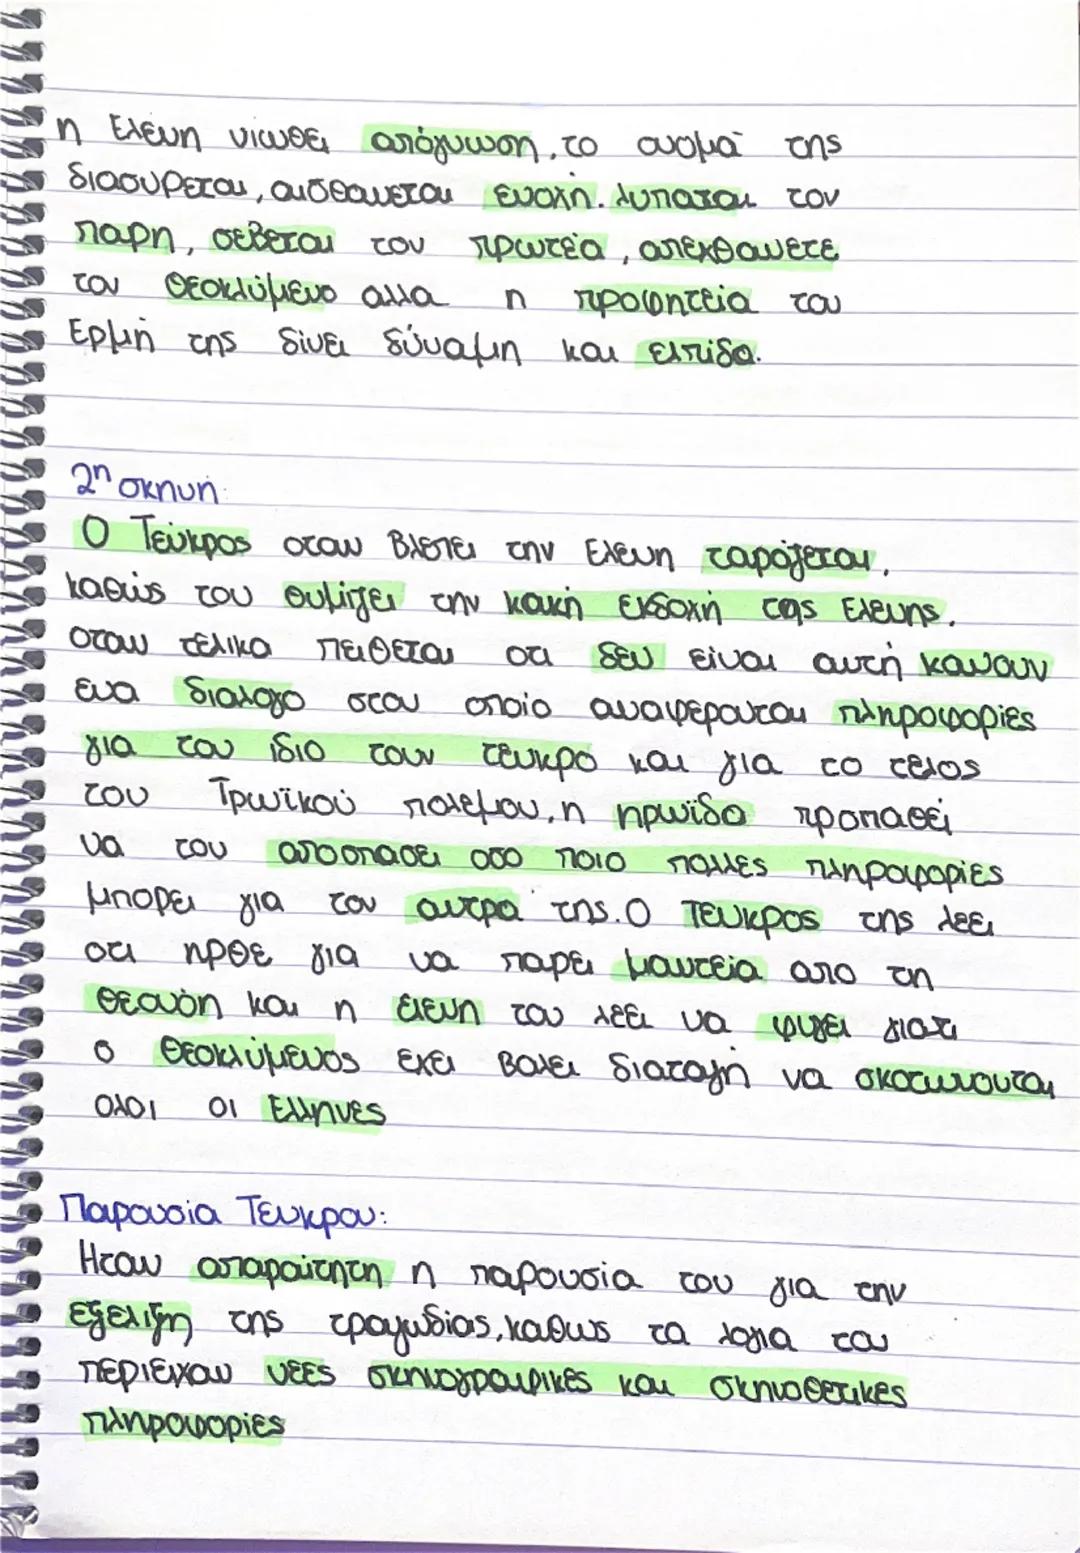 η Ελένη νιωθει απόγνωση, το ονομα της
διασυρεται, αισθανεται ενοχη. λυπαται τον
παρη, σεβεται τον πρωτέα, απεχθανετε
τον Θεοκλύμενο αλλα η προφητεία του
Ερμή της δίνει δύναμη και ελπιδα.
2η σκηνή:
Ο Τεύκρος οταν βλεπει την Ελενη ταράζεται,
καθώς του θυμίζει την κακή εκδοχή της Ελενης.
οταν τελικα πειθεται οτι δεν είναι αυτή κανουν
ενα διαλογο στον οποίο αναφερονται πληροφορίες
για τον ιδιο τον τευκρο και για το τελος
του Τρωϊκού πολεμου, η ηρωίδα προπαθεί
να του αποσπασει οσο ποιο πολλες πληροφορίες
μπορει για τον αντρα της. Ο Τευκρος της λεει
οτι ηρθε για να παρει μαντεία απο τη
θεανόη και η ελενη του λεει να φυγει γιατι
ο Θεοκλύμενος εχει βαλει διαταγή να σκοτωνονται
ολοι οι Ελληνες
Παρουσία Τευκρου:
Ηταν απαραίτητη η παρουσία του για την
εξελιξη της τραγωδίας, καθως τα λογια του
περιειχαν νεες σκηνογραφικες και σκηνοθετικες
πληροφορίες